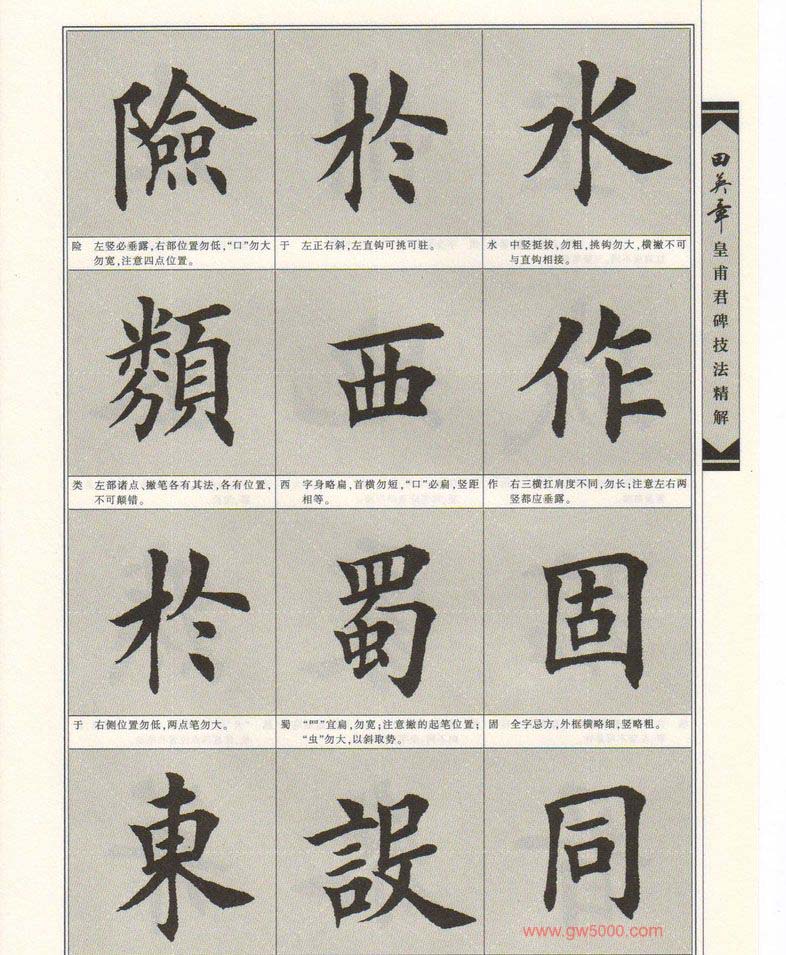 險 於 水
险 左竖必垂露,右部位置勿低,“口”勿大
勿宽,注意四点位置。
于 左正右斜,左直钩可挑可驻。
水 中竖挺拔,勿粗,挑钩勿大,横撇不可
与直钩相接。
類 西 作
类 左部诸点、撇笔各有其法,各有位置,
不可颠错。
西 字身略扁,首横勿短,“口”必扁,竖距
相等。
作 右三横扛肩度不同,勿长;注意左右两
竖都应垂露。
於 蜀 固
于 右侧位置勿低,两点笔勿大。
蜀 “罒”宜扁,勿宽;注意撇的起笔位置;
“虫”勿大,以斜取势。
固 全字忌方,外框横略细,竖略粗。
東 設 同
田英章
皇甫君碑技法精解
www.gw5000.com